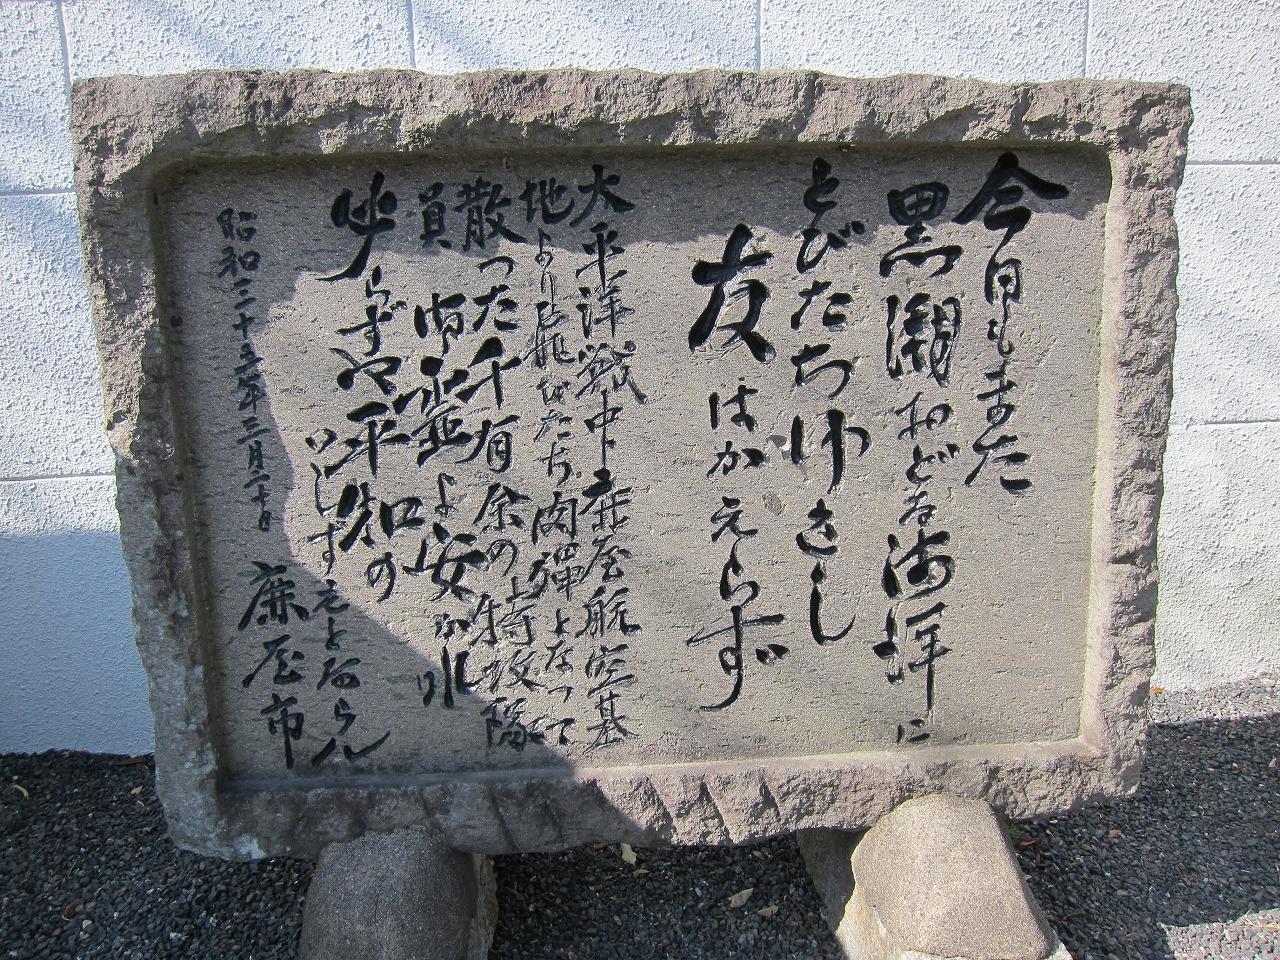 今日もまた
黒潮おどる海洋に
とびたちゆきし
友はかえらず
太平洋戦中鹿屋航空基
地より飛びたち肉弾となって
散った千有余の特攻隊
員 御霊よ安かれ
呼らずや平和の
いしずえとならん
昭和三十三年三月二十日 鹿屋市